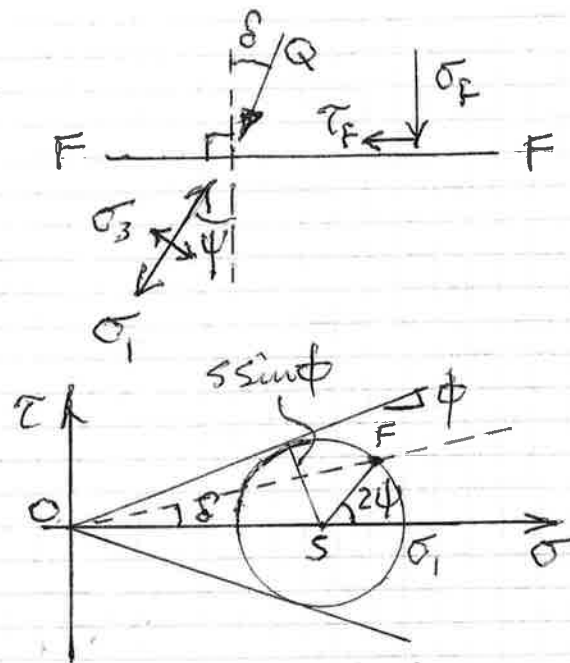 δ Q
σ_F
τ_F
F F
σ_3 ψ
σ_1
s sin ϕ
τ ϕ
F
O δ 2ψ
s σ_1 σ